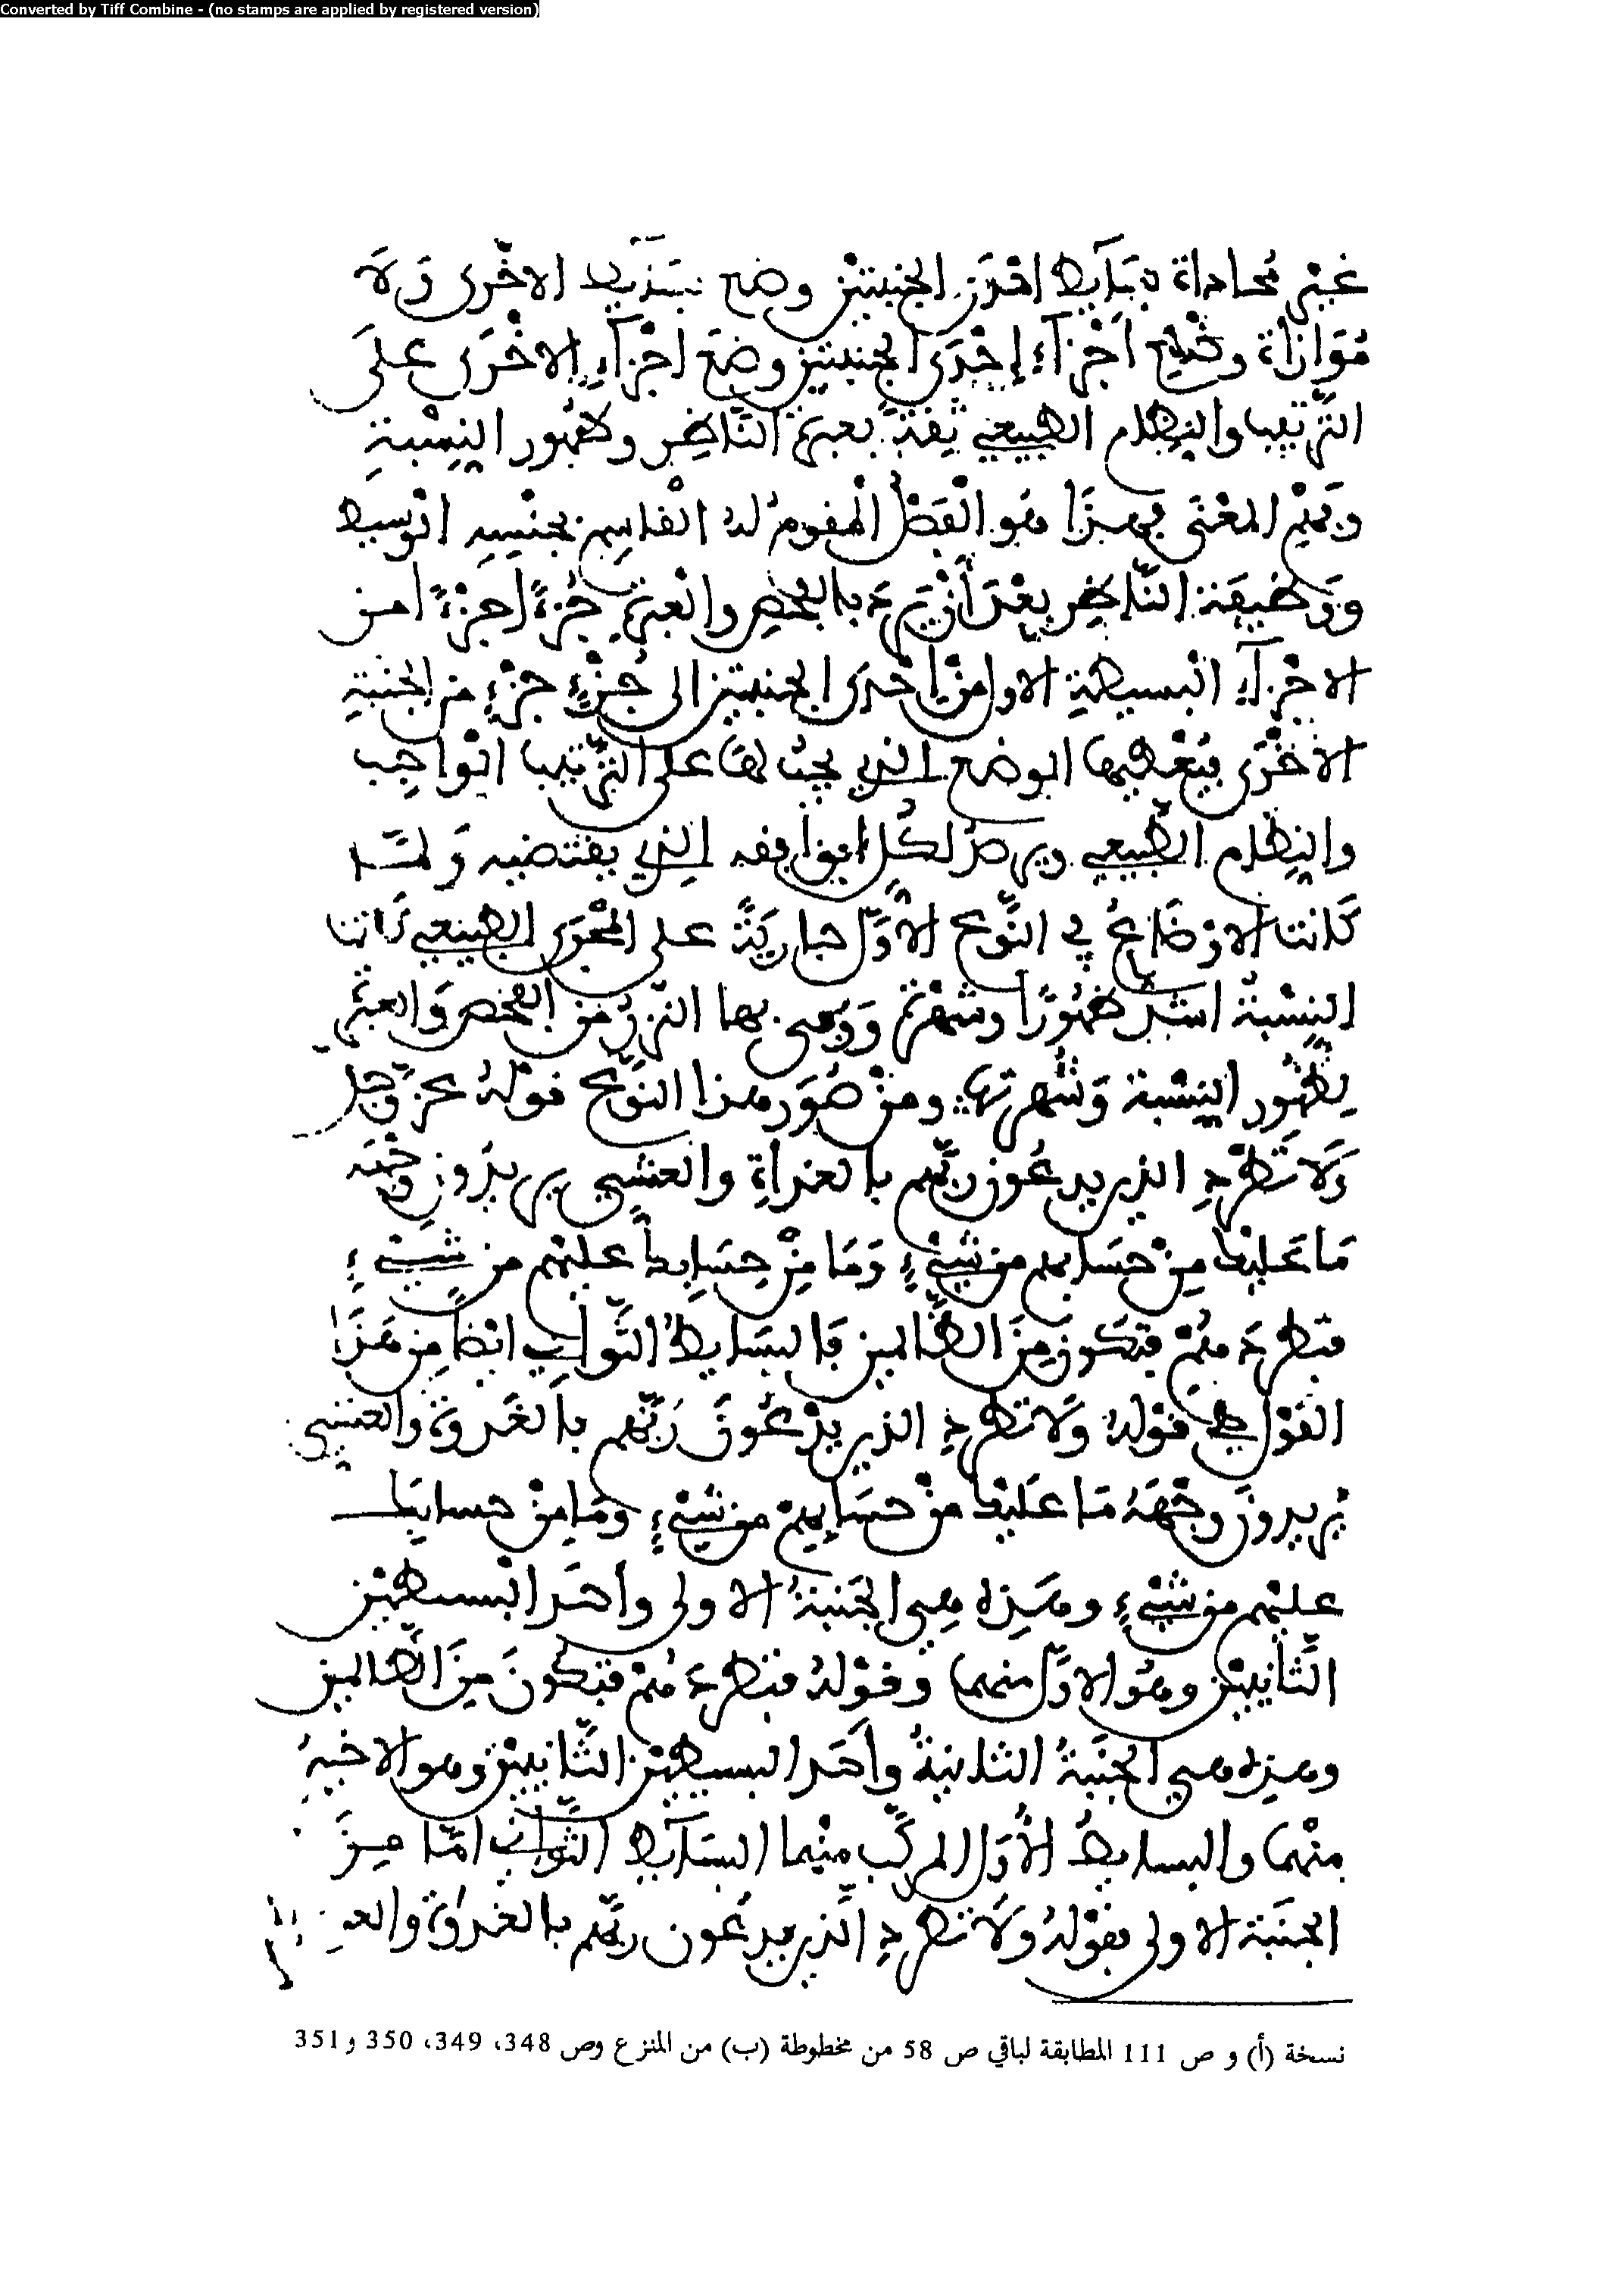 Converted by Tiff Combine - (no stamps are applied by registered version)
غير محاداة بسَآيط احْدَى الجنبتين وضع بسَآيط الاخْرى وَلَا
مُوَازاة وضع أَجْزآءِ إِحْدَى الجنبتين وضعَ اجْزآءِ الاخْرَى علَى
التّرتيب والنِظام الطبيعي ثِقَةً بعبرة النّاظِر ولظهُور النِسْبةِ
وتميْم المعْنَى في هذا هُو الفَصْل المقوم له القاسِم بجنْسِه المتوسط
وَوَظيفة النّاظِر بعْدَ أَنْ يَرِدَ بالفحْصِ والعبْرَةِ جُزءًا جزْءًا من
الاجْزآءِ البسيطةِ الاول منْ إحْدى الجنبتين الى جُزْءٍ جزْءٍ من الجنْبةِ
الاخْرَى فيُعْطيها الوضع الذي يجبُ لهَا على التّرْتيب الوَاجِب
والنِظام الطّبيعي ويرصدُ لكُلٍّ ايوافِقه الذِي يقتضيه وَلمّـا
كَانت الاوْضَاعُ في النَّوع الأوّل جاريَةً على المجْرَى الطبيعي كانت
النِسْبةُ اشدّ ظهُورًا وشهْرة ووفى بها النّزرُ من الفحْص وَالعبْرة
لظهُور النِسْبة وَشُهرتها ومنْ صُوَر هذا النوْع قولهُ عزّ وجل
وَلَا تَطْردِ الذين يدعُون ربّهم بالغداةِ والعشِي يريدُون وجْهَه
مَا عَليْك مِنْ حسَابهم من شيْءٍ وَمَا مِنْ حِسَابِك عليْهم من شيْءٍ
فتطرُدَهُمْ فتكونَ مِنَ الظّالمين فالبسَايطُ الثّوَانِي ايْضًا مِن هَذَا
القوْل هيَ قوْلهُ وَلا تطْردِ الذين يدْعُونَ رَبّهم بالغَدوة والعشِي
يُريدونَ وجْهَهُ مَا عَليْك منْ حسَابِهِمْ من شيْءٍ ومَا مِنْ حسابِكَ
عليْهم من شيْءٍ وهَذِه هِي الجَنبَةُ الاولى وأحَد البْسيطيْن
الثّانييْن وهُو الاوّل منهما وقوْلهُ فتطردَهُمْ فتكونَ مِنَ الظّالمين
وهذِه هي الجَنَبَةُ الثانيةُ وأحَد البسيطيْن الثّانييْن وهو الاخيرُ
منْهما والبسايطُ الأُوَل المركّب منْها البسَآيط الثّوَاني امّا مِنَ
الجنَبَة الاولى فقوْلهُ وَلَا تطْردِ الّذين يدعُون ربّهم بالغدوة والعشي
نسخة (أ) و ص 111 المطابقة لباقي ص 58 من مخطوطة (ب) من المنزع وص 348، 349، 350 و351